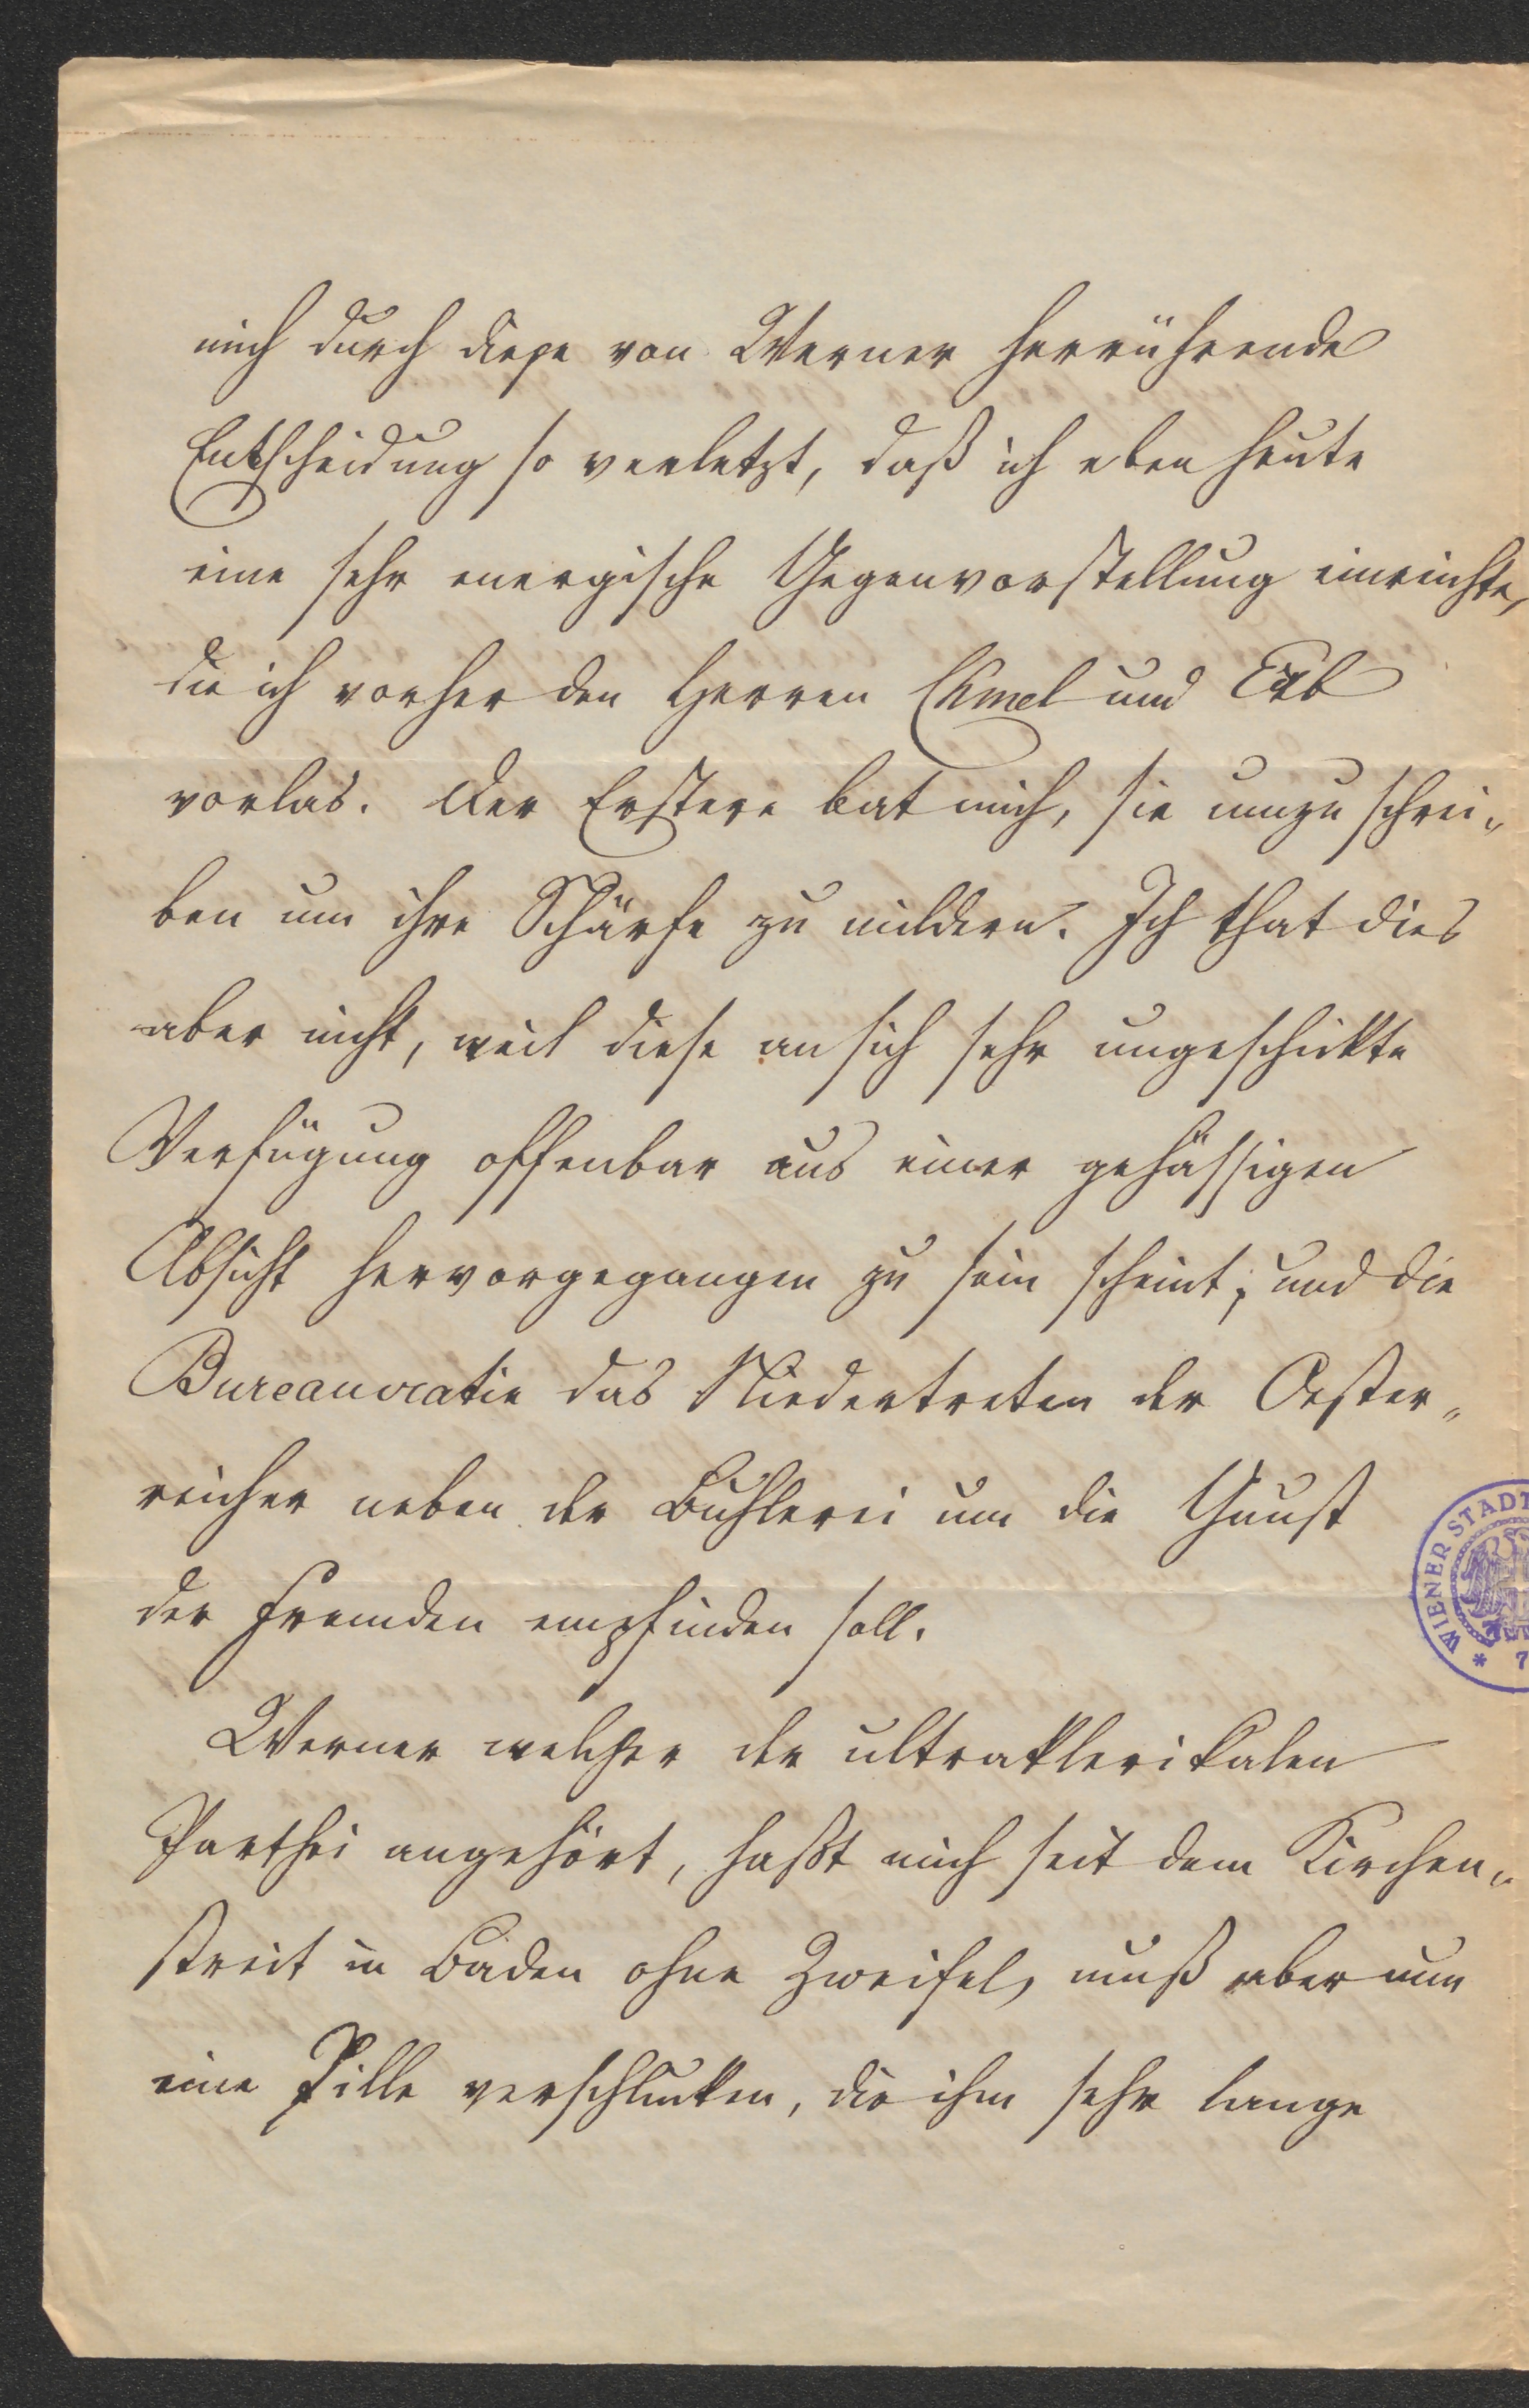 mich durch diese von Werner herrührende
Entscheidung so verletzt, daß ich eben heute
eine sehr energische Gegenvorstellung einreichte,
die ich vorher den Herren Chmel und Erb
vorlas. Der Erstere bat mich, sie umzuschrei„
ben um ihre Schärfe zu mildern. Ich that dies
aber nicht, weil diese an sich sehr ungeschickte
Verfügung offenbar aus einer gehässigen
Absicht hervorgegangen zu sein scheint; und die
Bureaucratie das Niedertreten der Oester„
reicher neben der Buhlerei um die Gunst
der Fremden empfinden soll.
Werner welcher der ultraklerikalen
Parthei angehört, haßt mich seit dem Kirchen„
streit in Baden ohne Zweifel, muß aber nun
eine Pille verschlucken, die ihm sehr lange
WIENER STADT
* 7